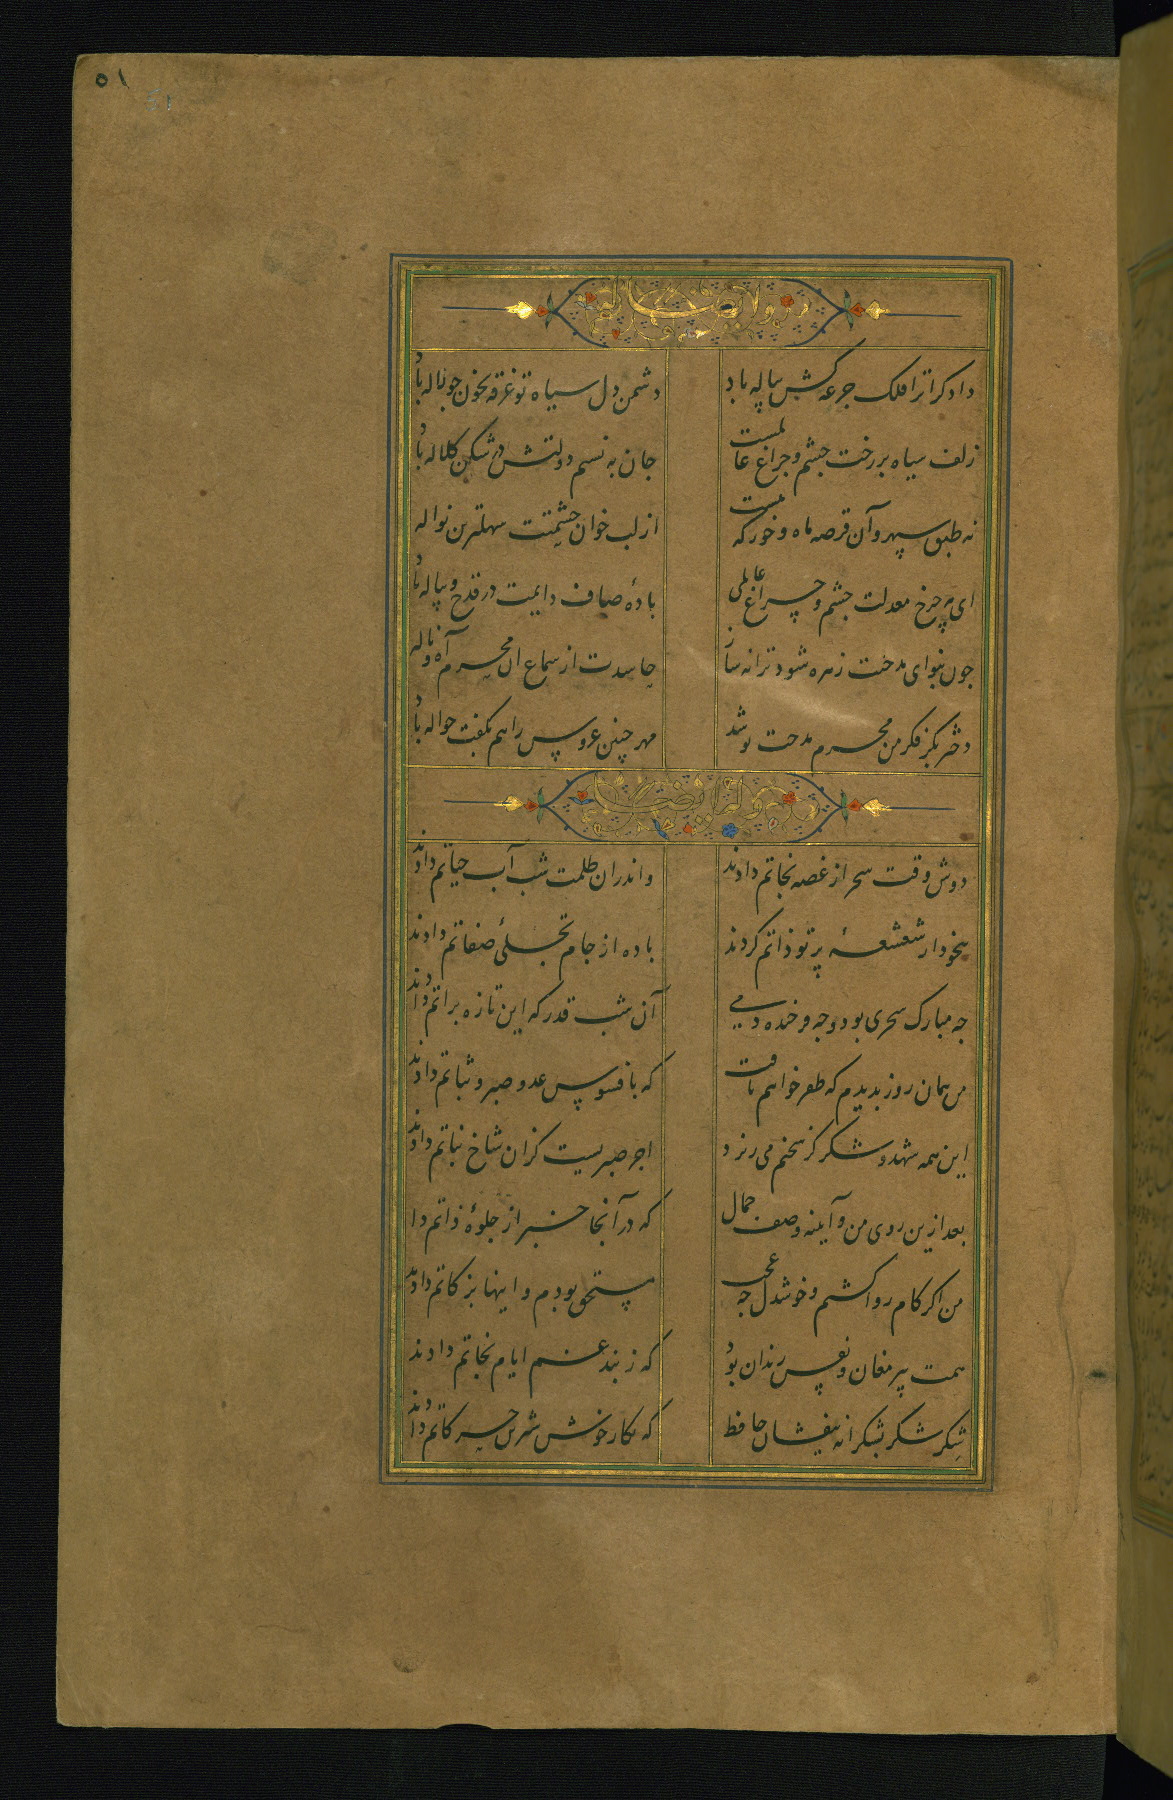 ٥١
51
وله ایضا
دادکرا ترا فلک جرعه کش پیاله باد
دشمن دل سیاه تو غرقه بخون جو ناله باد
زلف سیاه بر رخت جشم و جراغ عالمست
جان به نسیم دولتش در شکن کلاله باد
نه طبق سپهر و آن قرصه ماه و خور که هست
از لب خوان حشمتت سهلترین نواله
ای مه چرخ معدلت جشم و چراغ عالمی
بادهٔ صاف دایمت در قدح و پیاله باد
جون بنوای مدحتت زهره شود ترانه ساز
حاسدت از سماع ان محرم آه و ناله
دختر بکر فکر من محرم مدحت تو شد
مهر چنین عروس را هم بکفت حواله باد
وله ایضا
دوش وقت سحر از غصه نجاتم دادند
واندران ظلمت شب آب حیاتم دادند
بیخود از شعشعهٔ پرتو ذاتم کردند
باده از جام تجلیٔ صفاتم دادند
جه مبارک سحری بود و جه فرخنده دمی
آن شب قدر که این تازه براتم دادند
من همان روز بدیدم که ظفر خواهم یافت
که بافسوس عدو صبر و ثباتم دادند
این همه شهد و شکر کز سخنم می ریزد
اجر صبریست کزان شاخ نباتم دادند
بعد ازین روی من و آینه وصف جمال
که در آنجا خبر از جلوهٔ ذاتم دا
من اکر کام روا کشتم و خوشدل جه عجب
مستحق بودم و اینها بزکاتم دادند
همت پیر مغان و نفس رندان بود
که ز بند غم ایام نجاتم دادند
شکر شکر بشکرانه بیفشان حافظ
که نکار خوش شیرین حرکاتم دادند